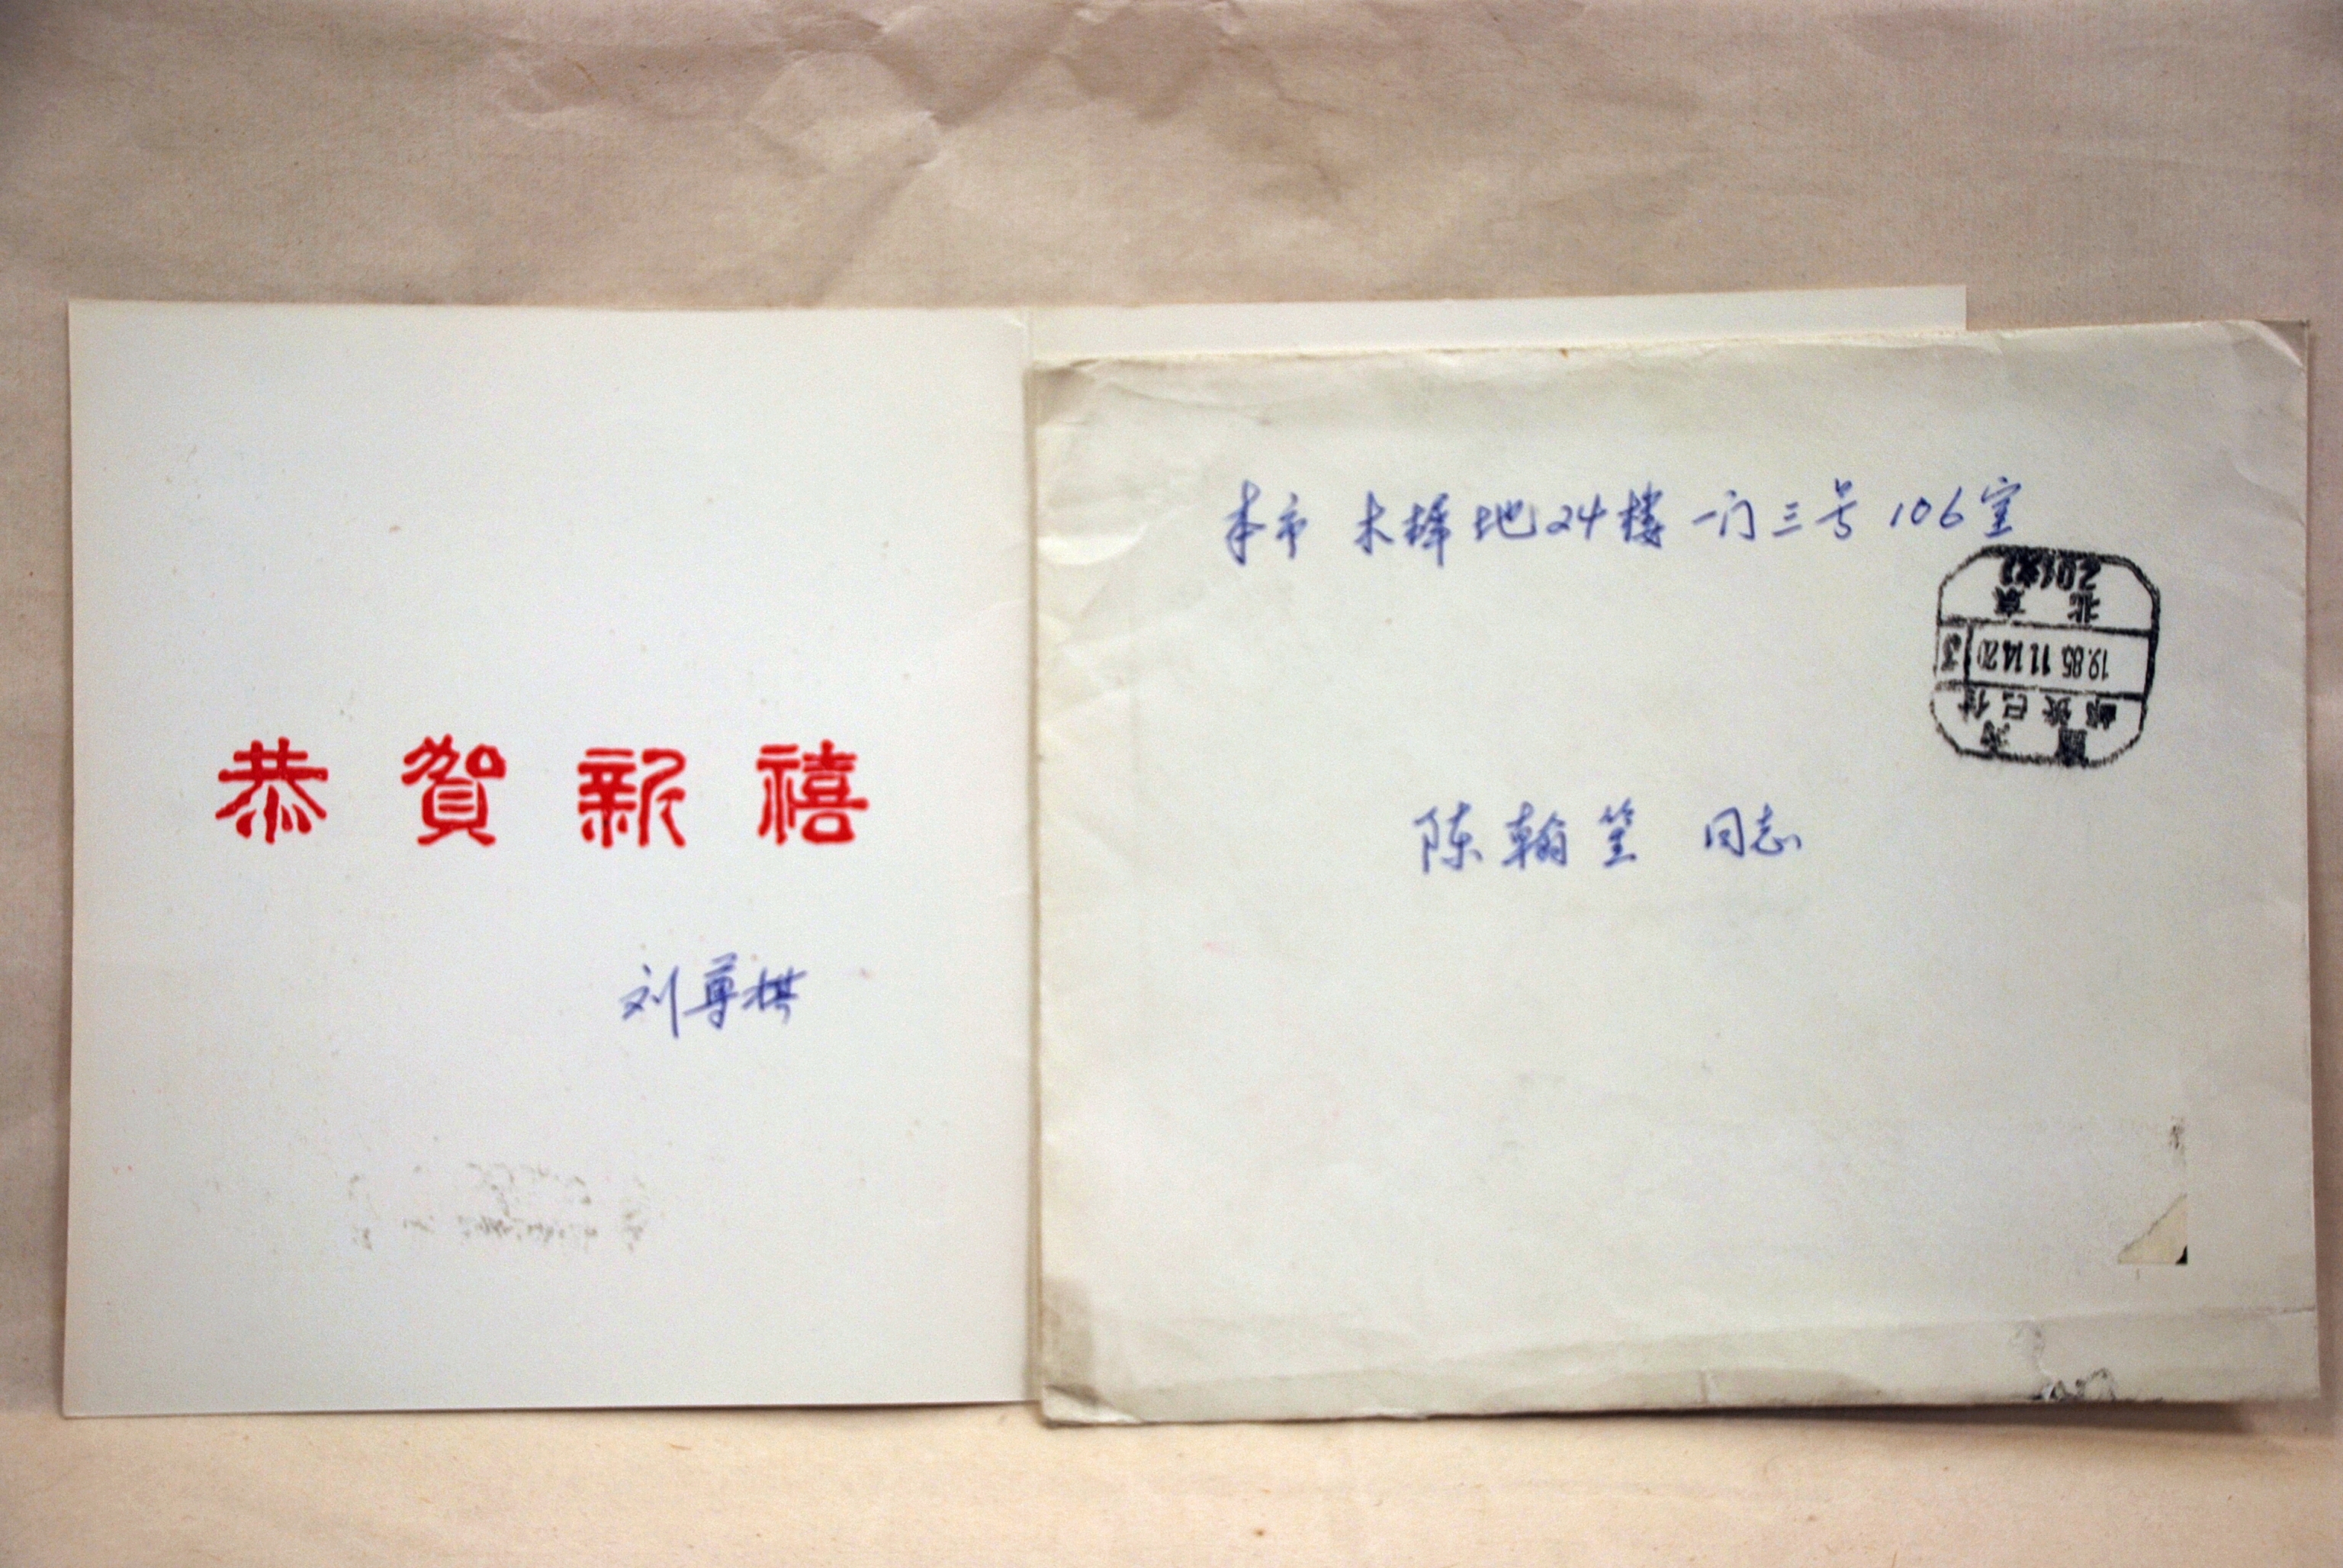 恭賀新禧
刘尊棋
本市 木樨地24楼一门三号106室
陈翰笙 同志
北京
20(支)
19.85.11.14.20
3
国内
邮资已付